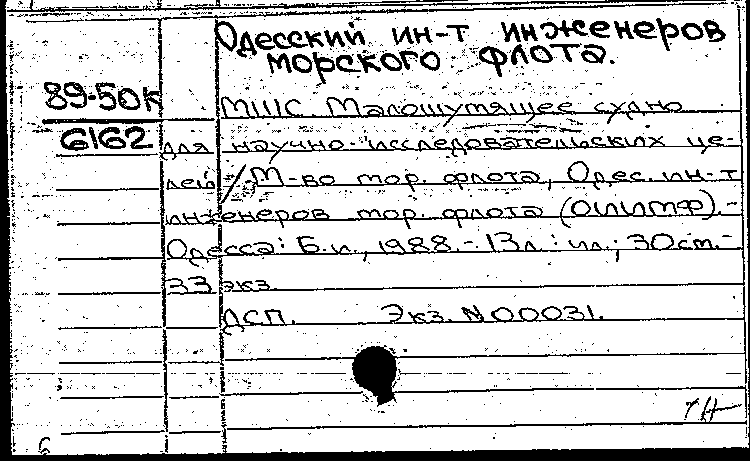 Одесский ин-т инженеров
морского флота.
89-50к
6162
МШС Малошумящее судно
для научно-исследовательских це-
лей / М-во мор. флота, Одес. ин-т
инженеров мор. флота (ОИИМФ).-
Одесса: Б.и., 1988.- 13л.: ил.; 30см.-
33 экз.
ДСП. Экз. N00031.
тн
6